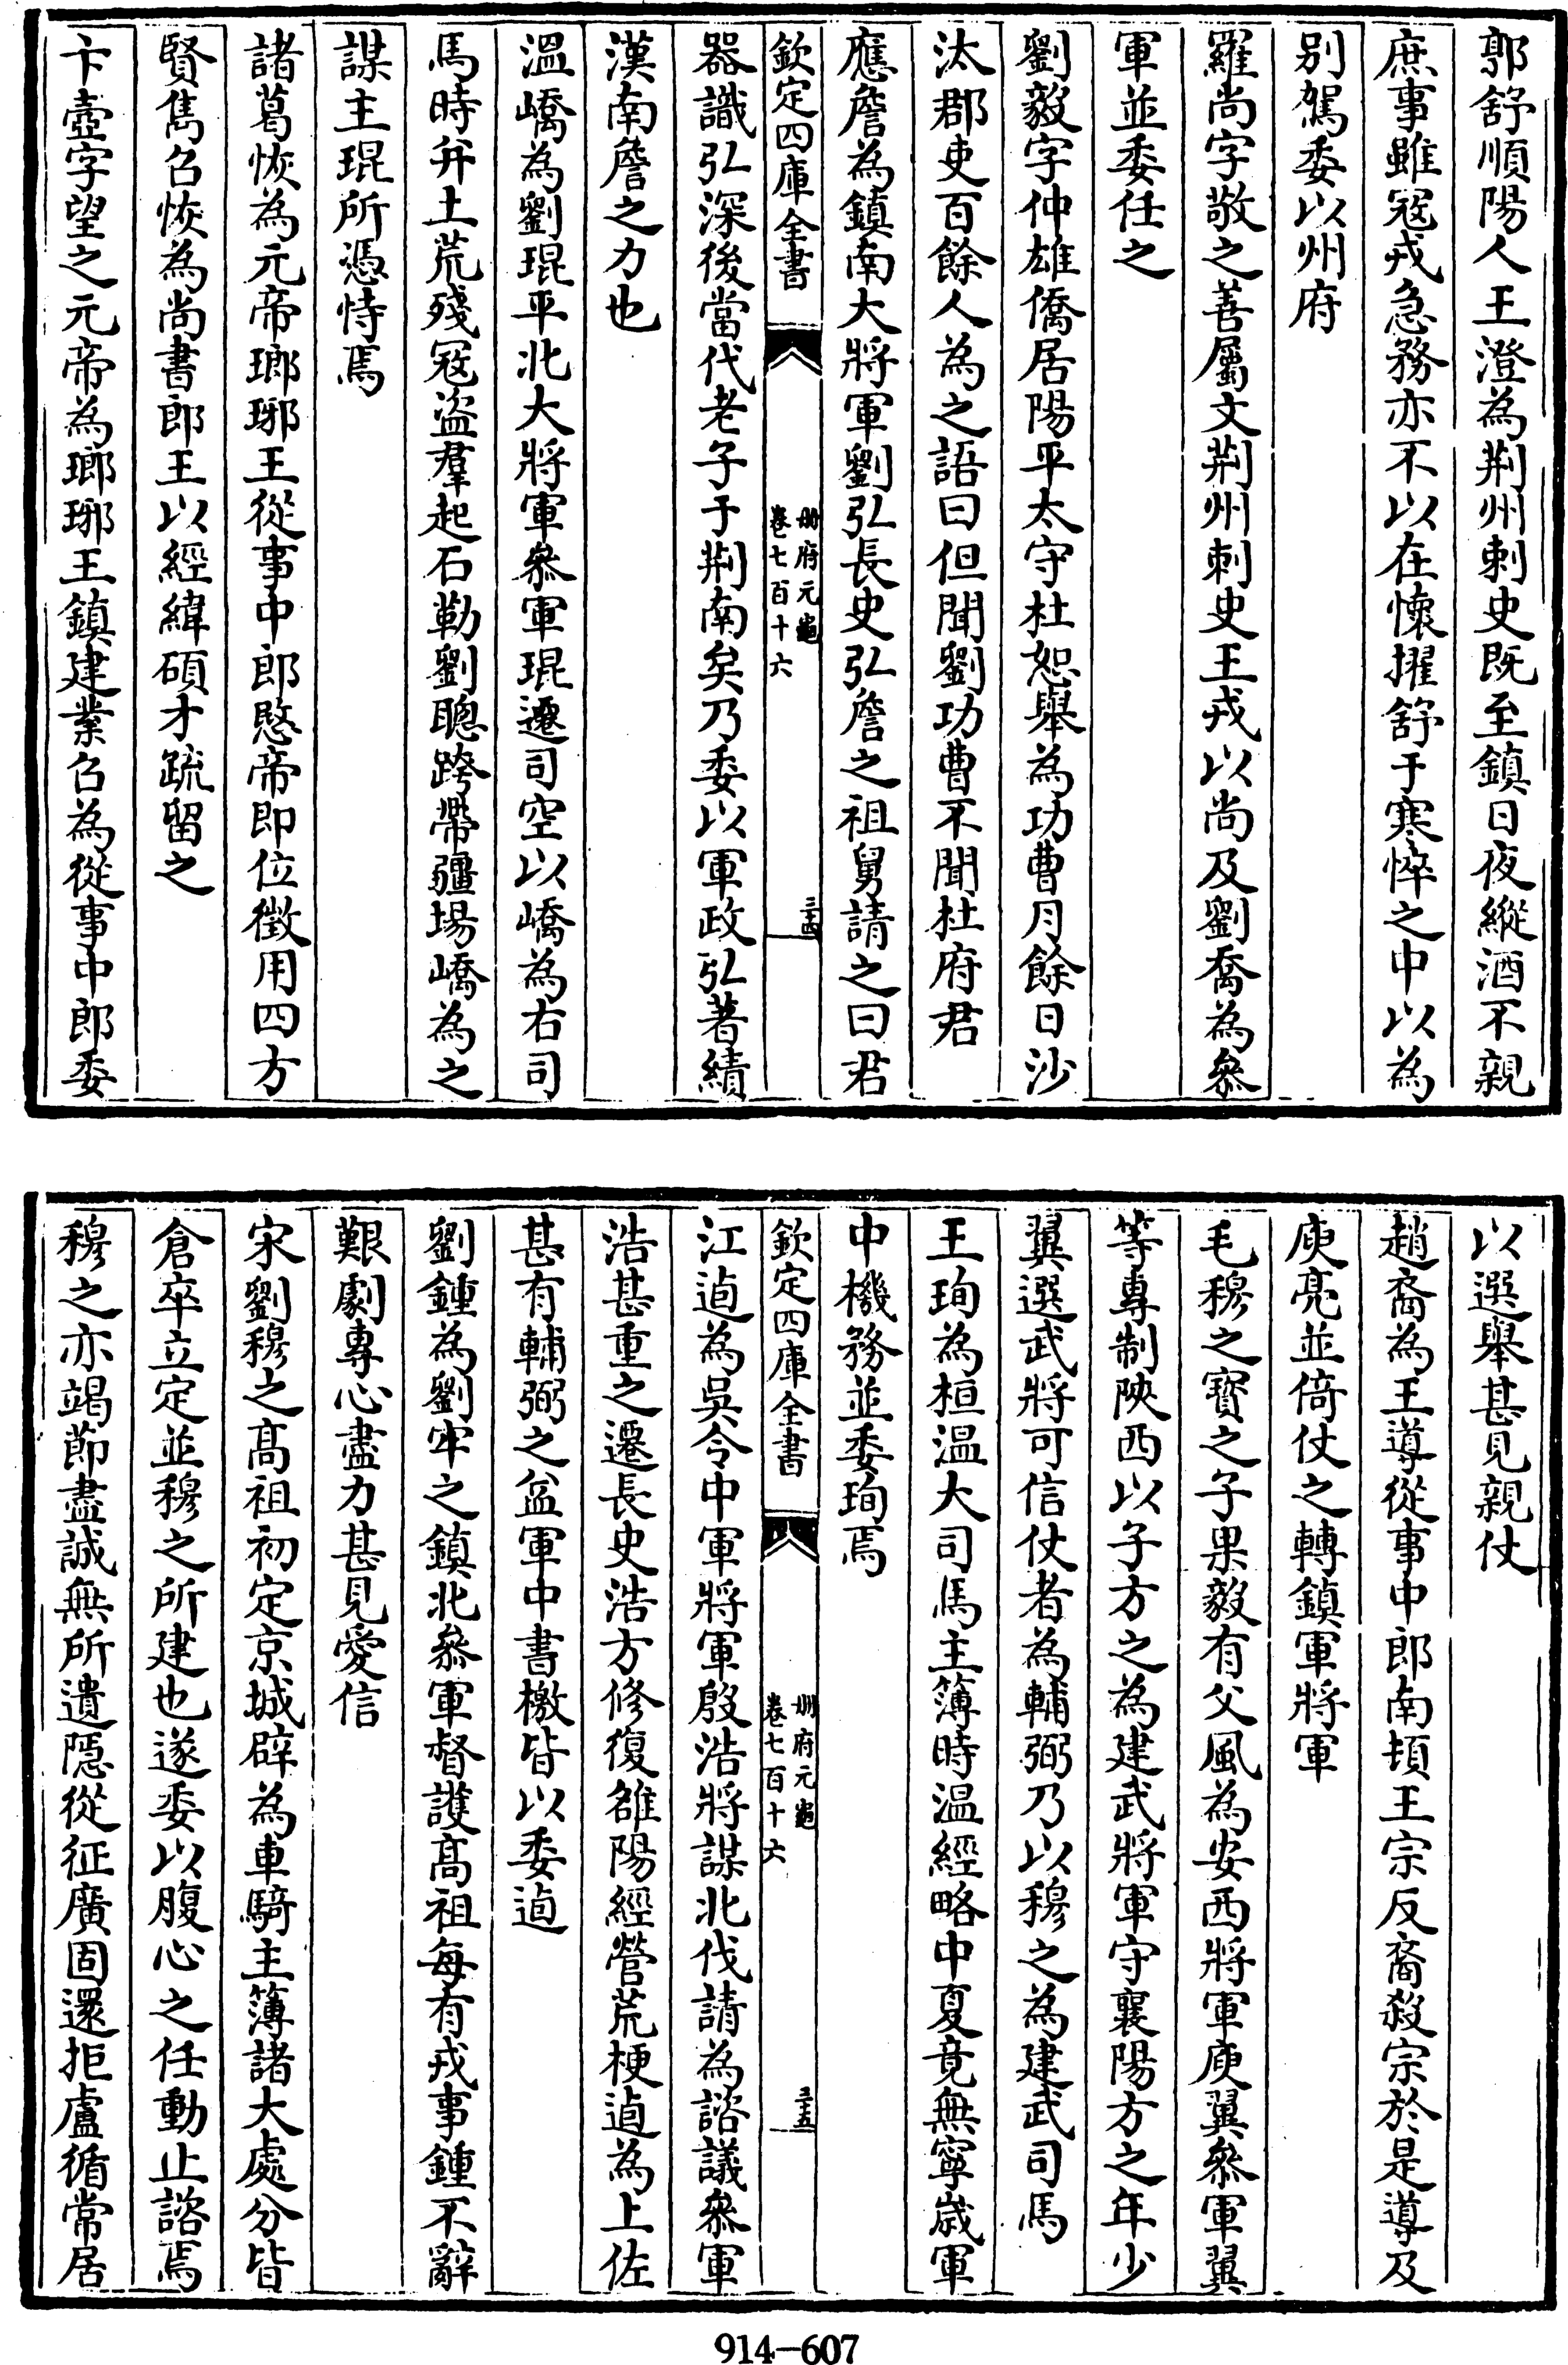 郭舒順陽人王澄為荆州刺史既至鎮日夜縱酒不親
庶事雖寇戎急務亦不以在懷擢舒于寒悴之中以為
別駕委以州府
羅尚字敬之善屬文荆州刺史王戎以尚及劉喬為叅
軍並委任之
劉毅字仲雄僑居陽平太守杜恕舉為功曹月餘日沙
汰郡吏百餘人為之語曰但聞劉功曹不聞杜府君
應詹為鎮南大將軍劉弘長史弘詹之祖舅請之曰君
欽定四庫全書
冊府元龜
卷七百十六
三十四
器識弘深後當代老子于荆南矣乃委以軍政弘著績
漢南詹之力也
溫嶠為劉琨平北大將軍叅軍琨遷司空以嶠為右司
馬時并土荒殘寇盜羣起石勒劉聰跨帶疆場嶠為之
謀主琨所憑恃焉
諸葛恢為元帝瑯琊王從事中郎愍帝即位徵用四方
賢雋召恢為尚書郎王以經緯碩才疏留之
卞壼字望之元帝為瑯琊王鎮建業召為從事中郎委
以選舉甚見親仗
趙裔為王導從事中郎南頓王宗反裔殺宗於是導及
庾亮並倚仗之轉鎮軍將軍
毛穆之寶之子果毅有父風為安西將軍庾翼叅軍翼
等專制陜西以子方之為建武將軍守襄陽方之年少
翼選武將可信仗者為輔弼乃以穆之為建武司馬
王珣為桓溫大司馬主簿時溫經略中夏竟無寧歲軍
中機務並委珣焉
欽定四庫全書
冊府元龜
卷七百十六
三十五
江逌為吳令中軍將軍殷浩將謀北伐請為諮議叅軍
浩甚重之遷長史浩方修復雒陽經營荒梗逌為上佐
甚有輔弼之益軍中書檄皆以委逌
劉鍾為劉牢之鎮北叅軍督護高祖每有戎事鍾不辭
艱劇專心盡力甚見愛信
宋劉穆之高祖初定京城辟為車騎主簿諸大處分皆
倉卒立定並穆之所建也遂委以腹心之任動止諮焉
穆之亦竭節盡誠無所遺隱從征廣固還拒盧循常居
914-607